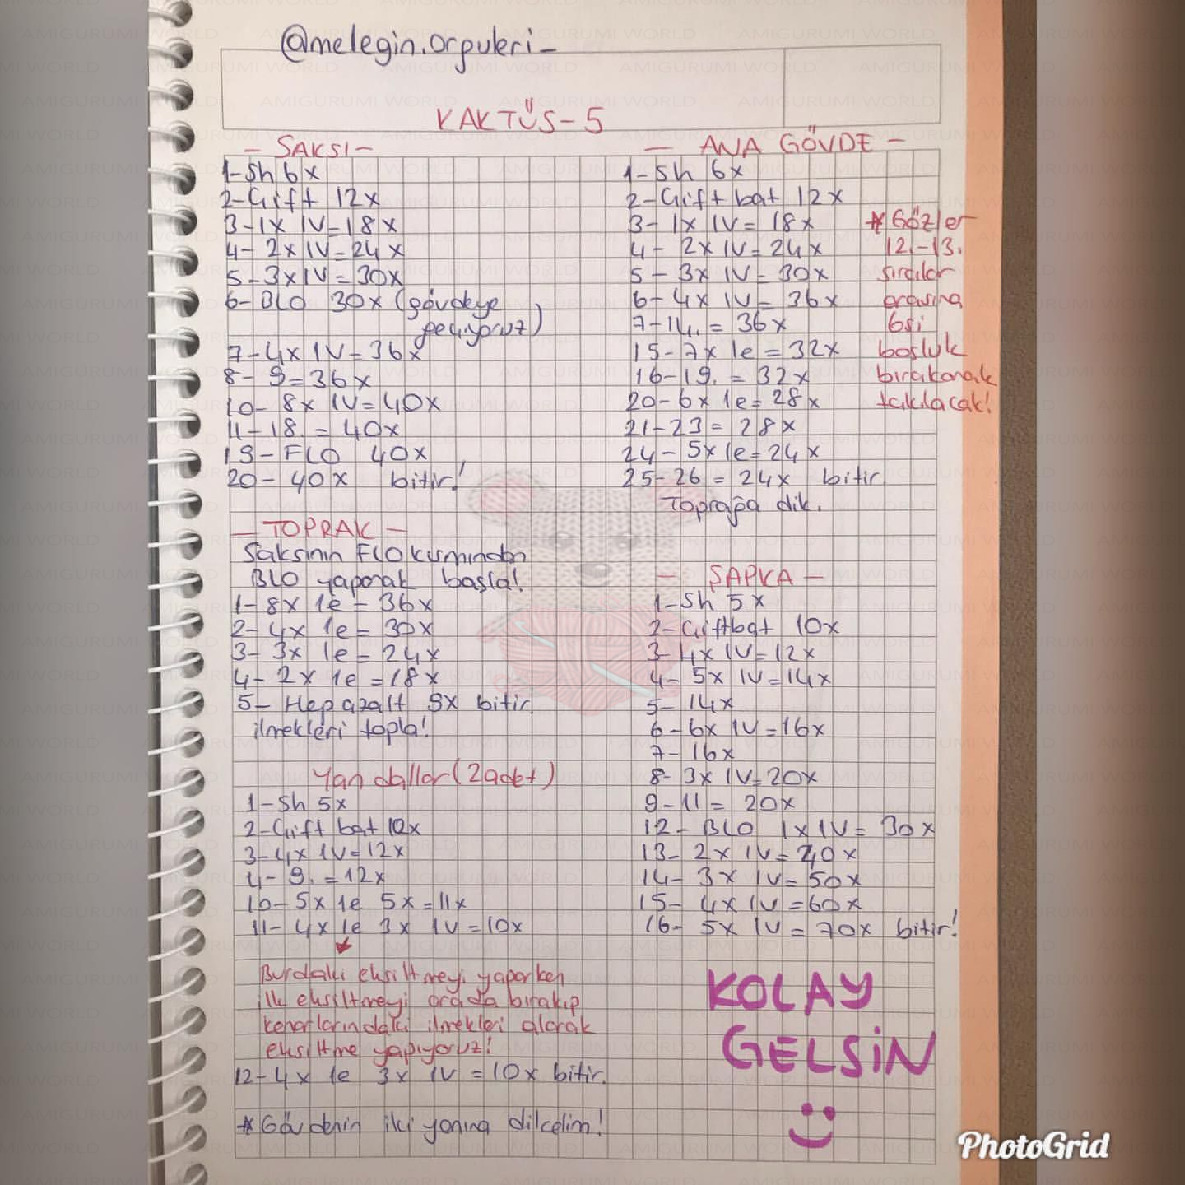 @melegin.orguleri_
KAKTÜS-5
- SAKSI -
1-Sh 6x
2-Çift 12x
3-1x 1V=18x
4-2x 1V=24x
5-3x1V=30x
6-BLO 30x (gövdeye
geçiyoruz)
7-4x 1V=36x
8-9=36x
10-8x 1V=40x
11-18 = 40x
19-FLO 40x
20-40x bitir!
- TOPRAK -
Saksının FLO kısmından
BLO yaparak başla!
1-8x 1e=36x
2-4x 1e=30x
3-3x 1e=24x
4-2x 1e=18x
5-Hep azalt 9x bitir
ilmekleri topla!
Yan dallar (2 adet)
1-Sh 5x
2-Çift bat 10x
3-4x 1V=12x
4-9.=12x
10-5x 1e 5x=11x
11-4x 1e 3x 1V=10x
Burdaki eksiltmeyi yaparken
ilk eksiltmeyi arada bırakıp
kenarlarındaki ilmekleri alarak
eksiltme yapıyoruz!
12-4x 1e 3x 1V=10x bitir.
*Gövdenin iki yanına dikelim!
- ANA GÖVDE -
1-Sh 6x
2-Çift bat 12x
3-1x 1V=18x
4-2x 1V=24x
5-3x 1V=30x
6-4x 1V=36x
7-14.=36x
15-7x 1e=32x
16-19.=32x
20-6x 1e=28x
21-23=28x
24-5x 1e=24x
25-26=24x bitir
Toprağa dik.
*Gözler
12.-13.
sıralar
arasına
6si
boşluk
bırakarak
takılacak!
- ŞAPKA -
1-Sh 5x
2-Çift bat 10x
3-4x 1V=12x
4-5x 1V=14x
5-14x
6-6x 1V=16x
7-16x
8-3x 1V=20x
9-11=20x
12-BLO 1x 1V=30x
13-2x 1V=40x
14-3x 1V=50x
15-4x 1V=60x
16-5x 1V=70x bitir!
KOLAY
GELSİN
PhotoGrid
AMIGURUMI WORLD